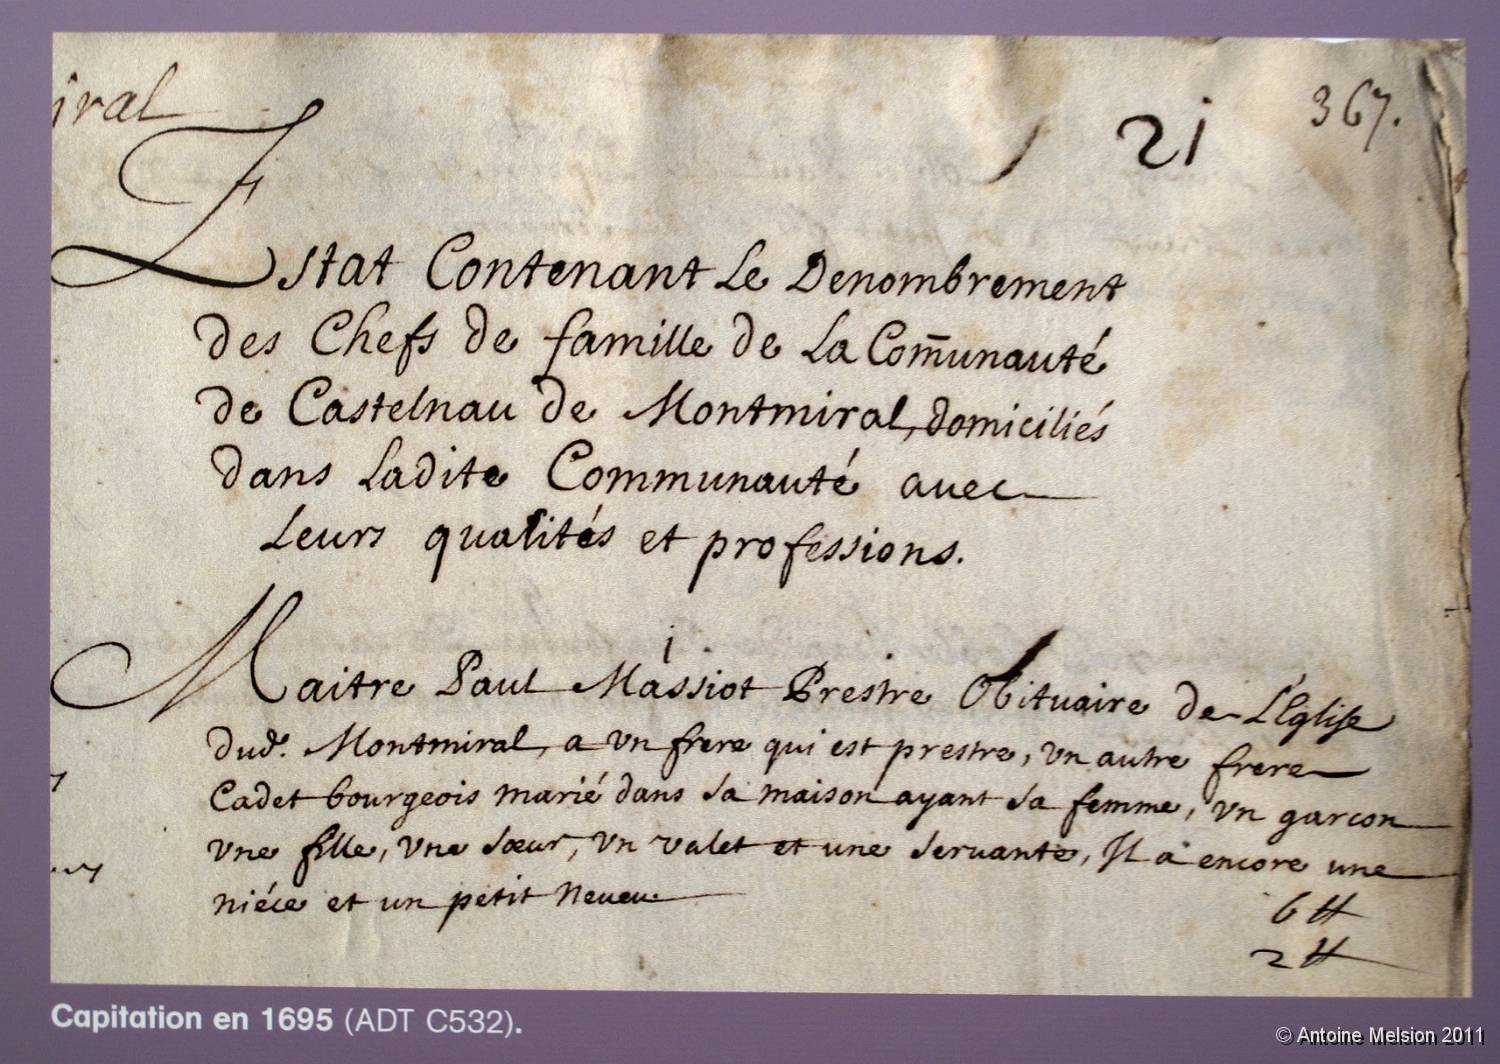 iral
21
367.
Estat Contenant Le Denombrement
des Chefs de famille de La Com̄unauté
de Castelnau de Montmiral, domiciliés
dans Ladite Communauté avec
Leurs qualités et professions.
1
Maitre Paul Massiot Prestre Obituaire de L'Eglise
dud. Montmiral, a vn frere qui est prestre, vn autre frere
Cadet bourgeois marié dans sa maison ayant sa femme, vn garcon
vne fille, vne sœur, vn valet et une servante, Il a encore une
niéce et un petit neveu
6 ₶
2 ₶
Capitation en 1695 (ADT C532).
© Antoine Melsion 2011